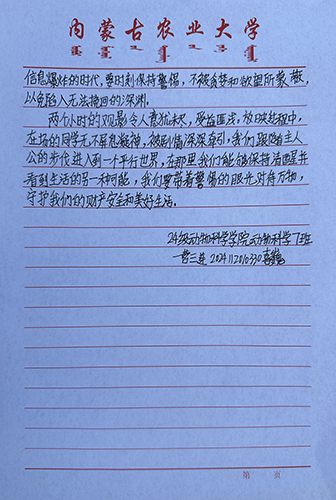 内蒙古农业大学
信息爆炸的时代,要时刻保持警惕,不被贪婪和欲望所蒙蔽,
以免陷入无法挽回的深渊。
两个小时的观影令人意犹未尽,受益匪浅,放映过程中,
在场的同学无不屏息凝神,被剧情深深牵引,我们跟随主人
公的步伐进入到一个平行世界,在那里我们能够保持清醒并
看到生活的另一种可能,我们要带着警惕的眼光对待万物,
守护我们的财产安全和美好生活。
24级动物科学学院动物科学7班
第 页